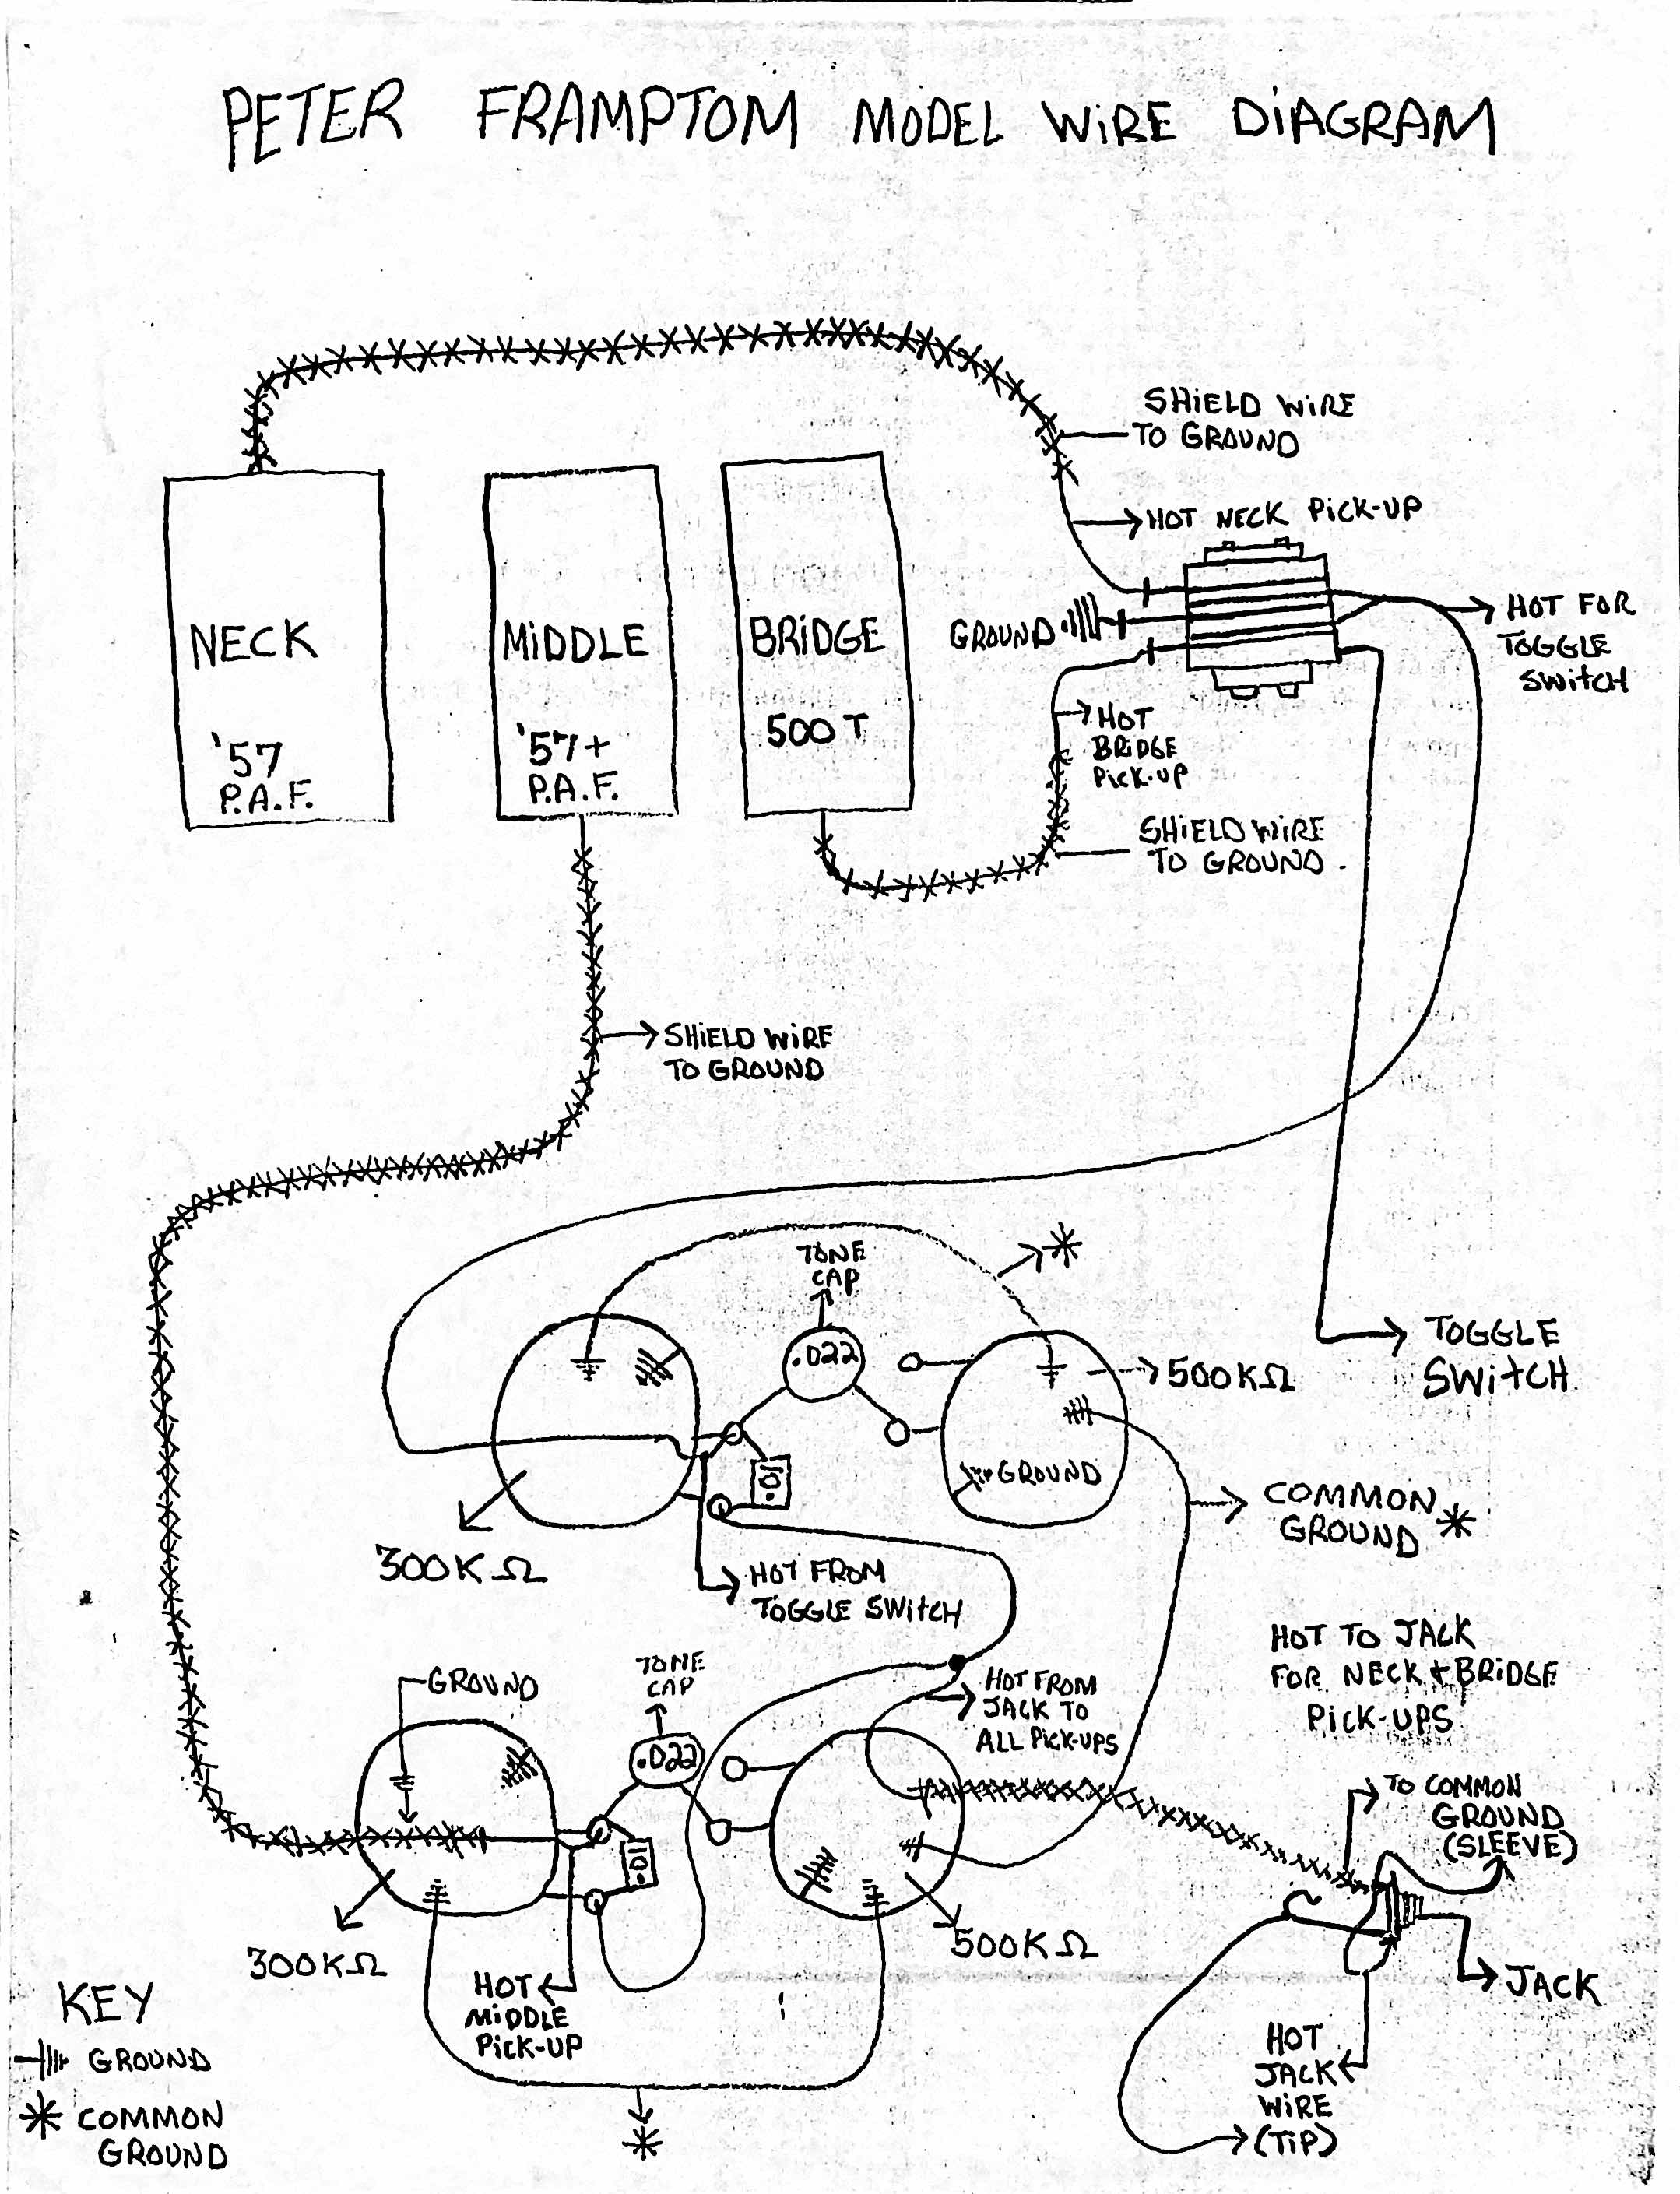 PETER FRAMPTOM MODEL WIRE DIAGRAM
SHIELD WIRE
TO GROUND
HOT NECK PICK-UP
NECK
'57
P.A.F.
MIDDLE
'57+
P.A.F.
BRIDGE
500T
GROUND
HOT FOR
TOGGLE
SWITCH
HOT
BRIDGE
PICK-UP
SHIELD WIRE
TO GROUND
SHIELD WIRE
TO GROUND
TONE
CAP
.022
500KΩ
TOGGLE
SWITCH
GROUND
COMMON
GROUND *
300KΩ
HOT FROM
TOGGLE SWITCH
HOT TO JACK
FOR NECK + BRIDGE
PICK-UPS
GROUND
TONE
CAP
.022
HOT FROM
JACK TO
ALL PICK-UPS
TO COMMON
GROUND
(SLEEVE)
300KΩ
500KΩ
HOT
MIDDLE
PICK-UP
JACK
HOT
JACK
WIRE
(TIP)
KEY
GROUND
* COMMON
GROUND